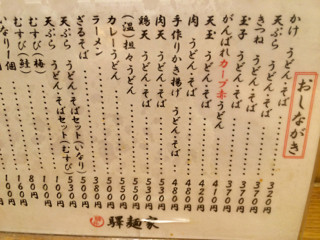 おしながき
かけ うどん・そば…………320円
天ぷら うどん・そば…………370円
きつね うどん・そば…………370円
玉子 うどん・そば…………370円
がんばれカープ赤うどん…………410円
天玉 うどん・そば…………420円
肉 うどん・そば…………480円
手作りかき揚げ うどん・そば……480円
肉天 うどん・そば…………530円
鶏天 うどん・そば…………530円
(温)担々うどん…………550円
カレーうどん…………550円
ラーメン…………380円
ざるそば…………500円
天ぷら うどん・そばセット(いなり)
天ぷら うどん・そばセット(むすび)
むすび(梅)
むすび(鮭)
いなり一個
驛麺家